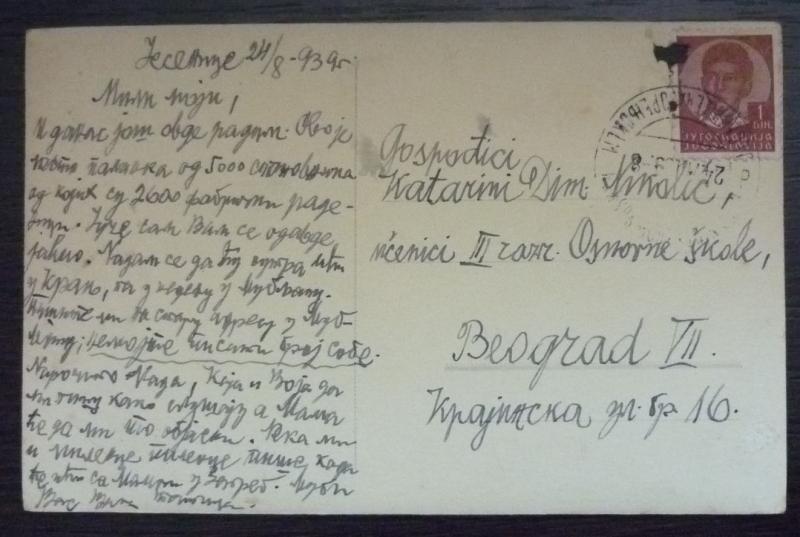 Јесенице 24/8-939г.
Мили моји,
И данас још овде радим. Ово је
паланка од 5000 становника
од којих су 2600 фабрички раде-
ници. Јуче сам Вам се одавде
јавио. Надам се да ћу сутра ићи
у Крањ, па у недељу у Љубљану.
Пишите ми на стару адресу у Љуб-
љану; немојте писати број собе.
Нарочито Нада, Кеја и Воја да
ми пишу како слушају а Мама
ће да ми то објасни. Нека ми
и пише, када
ће ићи са Мамом у Загреб. Љуби
Вас Ваш
Gospođici
Katarini Dim. Nikolić,
učenici III razr. Osnovne škole,
Beograd VII.
Крајинска ул. бр. 16.
1
ДИН.
ЈУГОСЛАВИЈА
JUGOSLAVIJA